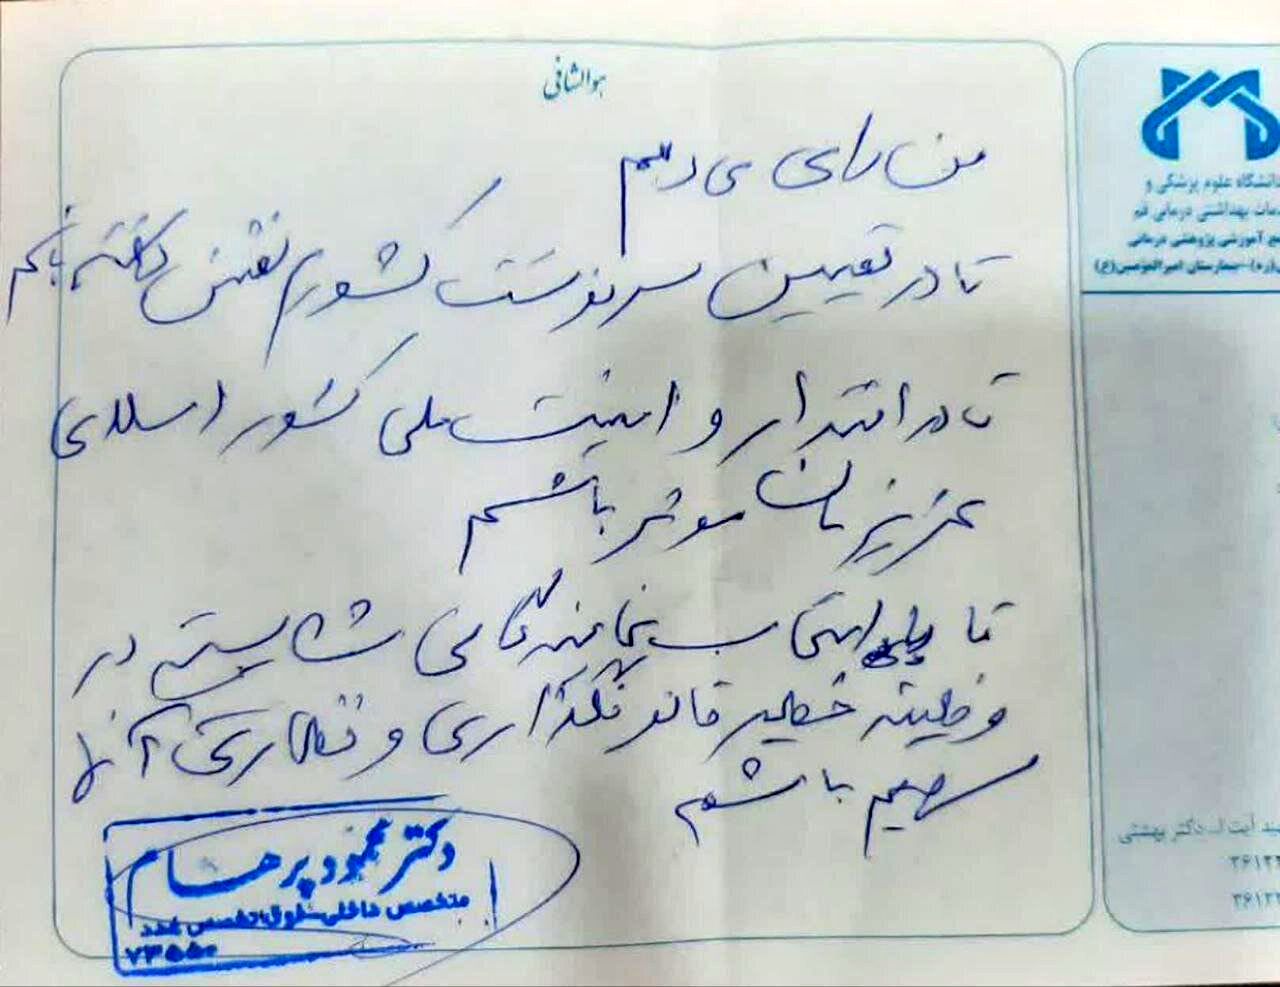 هوالشافی
من رای می دهم
تا در تعیین سرنوشت کشورم نقش داشته باشم
تا در اقتدار و امنیت ملی کشور اسلامی
عزیزمان موثر باشم
تا انتخاب نمایندگانی شایسته در
وظیفه خطیر قانونگذاری و نظارتی آنها
سهیم باشم
دکتر محمود پرهام
متخصص داخلی-فوق تخصص غدد
۷۳۵۵۰
دانشگاه علوم پزشکی و
خدمات بهداشتی درمانی قم
آموزشی پژوهشی درمانی
(ره)-بیمارستان امیرالمومنین(ع)
آیت ا... دکتر بهشتی